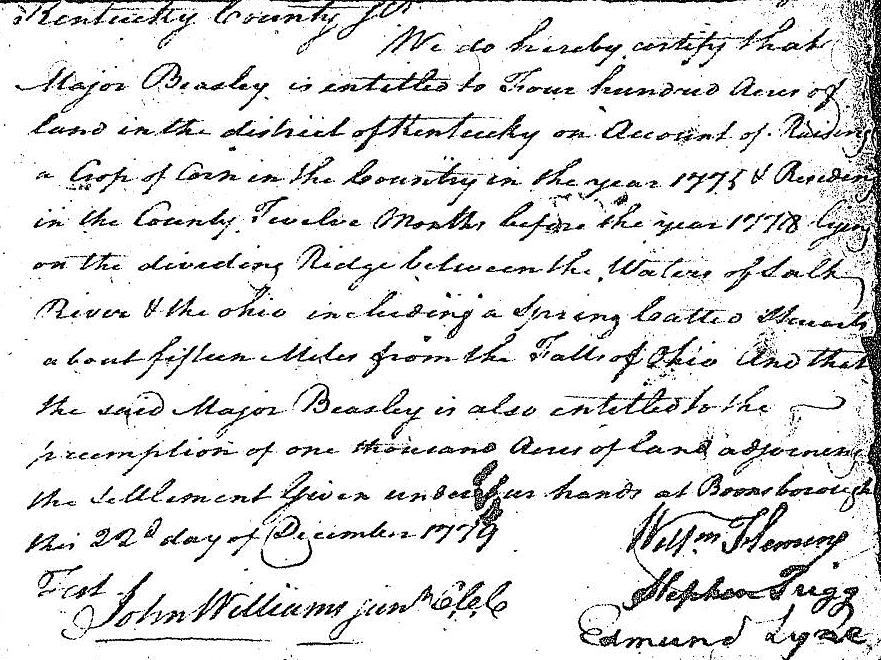 Kentucky County Sct
We do hereby certify that
Major Beasley is entitled to Four hundred Acres of
land in the district of Kentucky on Account of Raising
a Crop of Corn in the Country in the year 1775 & Residing
in the County Twelve Months before the year 1778 lying
on the dividing Ridge between the Waters of Salt
River & the ohio including a Spring Called
about fifteen Miles from the Falls of Ohio And that
the said Major Beasley is also entitled to the
preemption of one thousand Acres of land adjoining
the settlement Given under our hands at Boonsborough
this 22d day of December 1779
Test
John Williams junr Cl.C
Willm Fleming
Stephen Trigg
Edmund Lyne